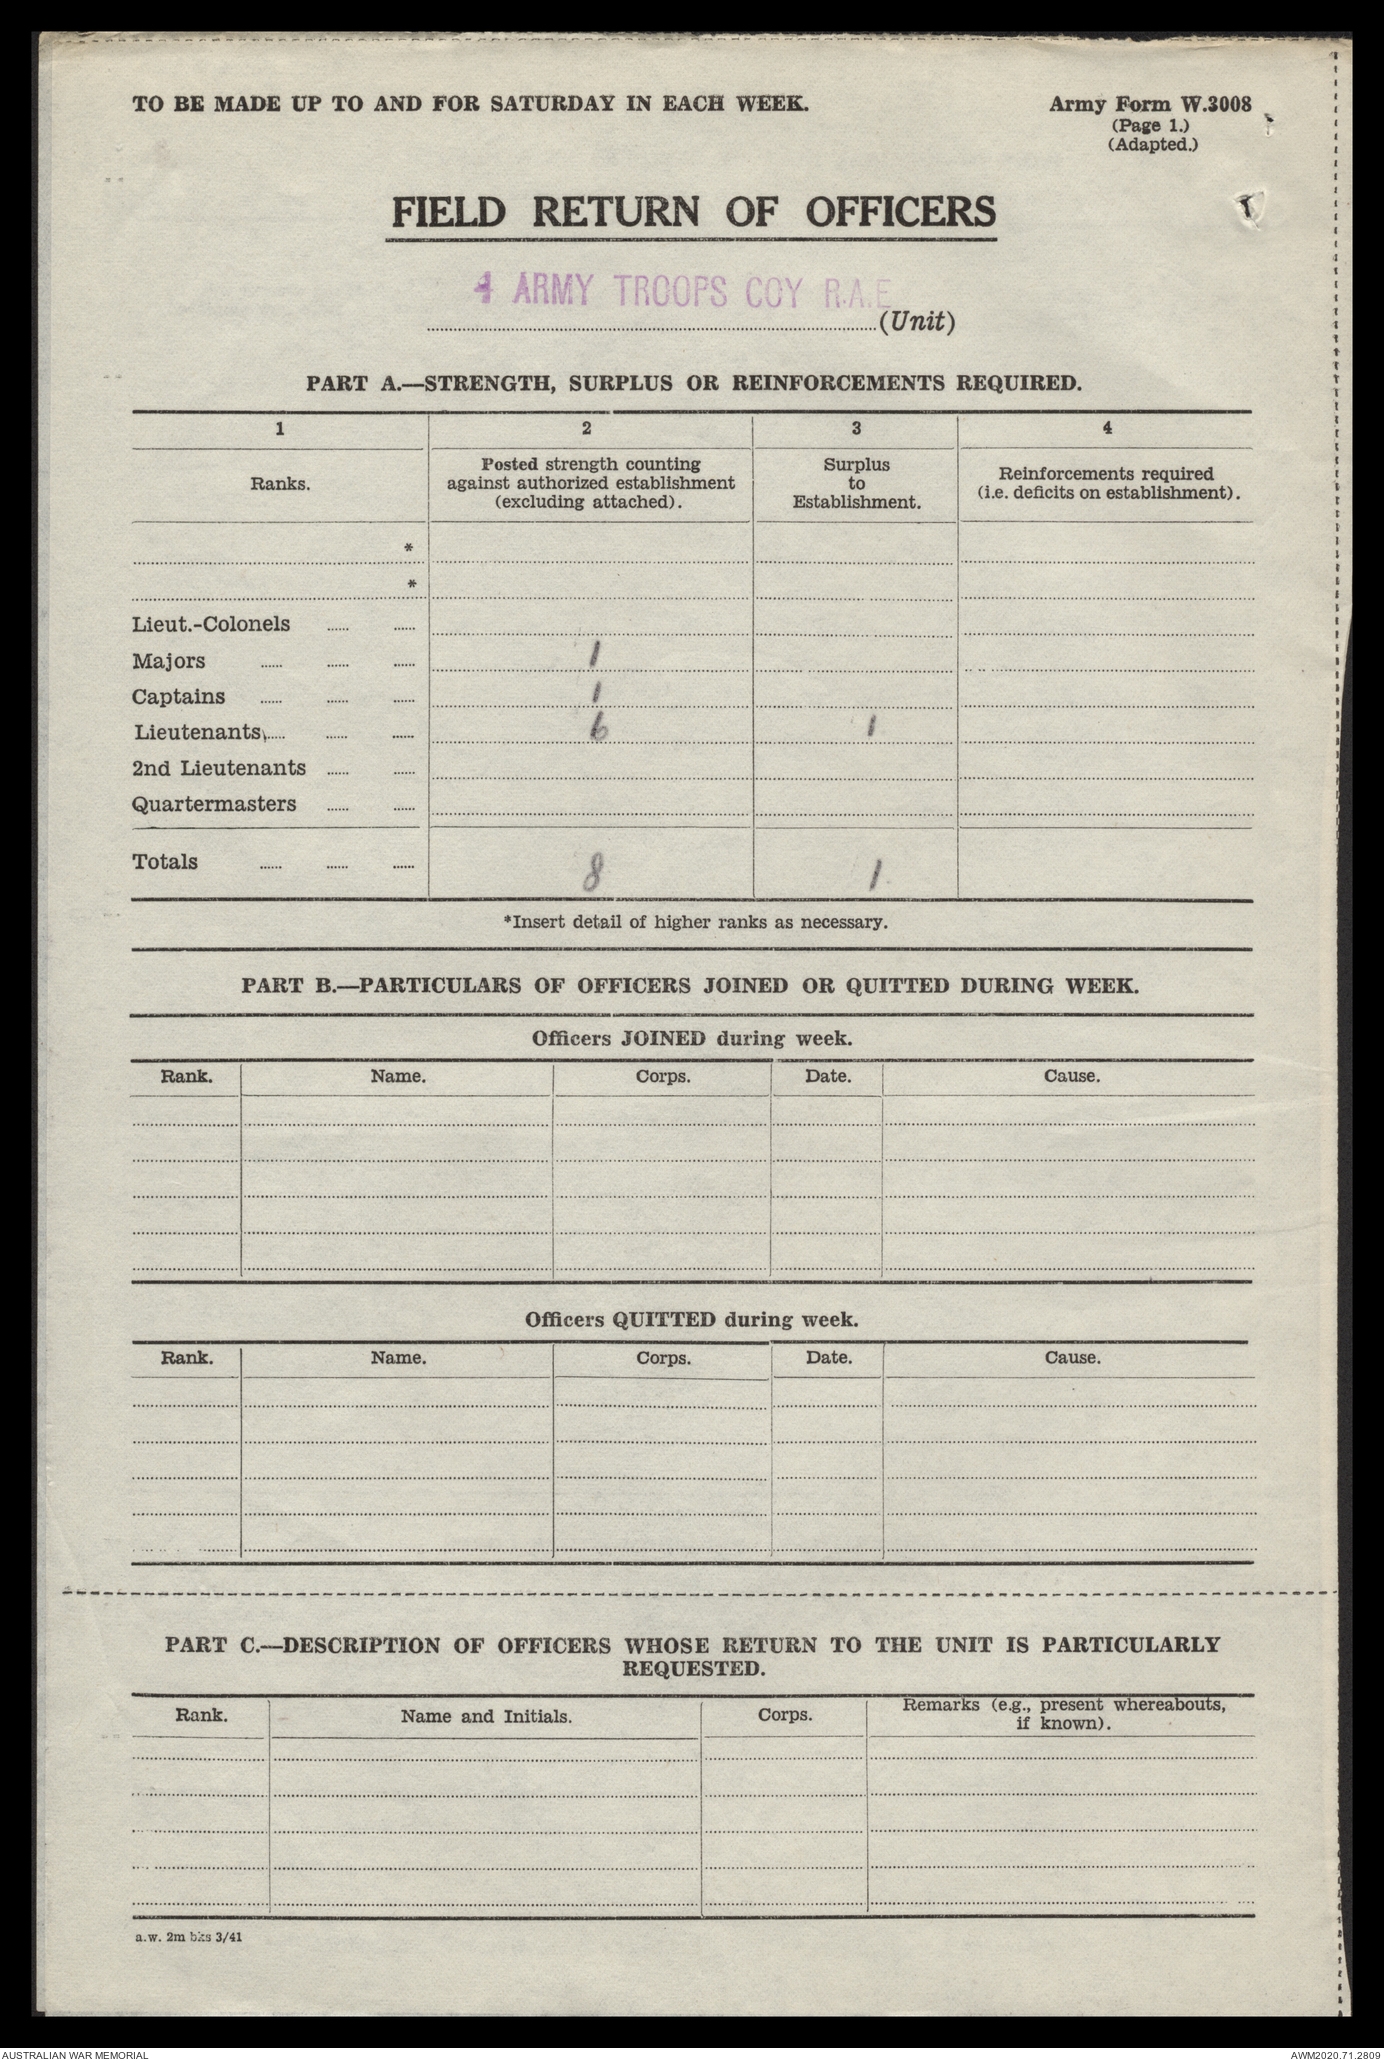 TO BE MADE UP TO AND FOR SATURDAY IN EACH WEEK.
Army Form W.3008
(Page 1.)
(Adapted.)
FIELD RETURN OF OFFICERS
4 ARMY TROOPS COY R.A.E
(Unit)
PART A.—STRENGTH, SURPLUS OR REINFORCEMENTS REQUIRED.
1 2 3 4
Ranks.
Posted strength counting
against authorized establishment
(excluding attached).
Surplus
to
Establishment.
Reinforcements required
(i.e. deficits on establishment).
*
*
Lieut.-Colonels
Majors 1
Captains 1
Lieutenants 6 1
2nd Lieutenants
Quartermasters
Totals 8 1
*Insert detail of higher ranks as necessary.
PART B.—PARTICULARS OF OFFICERS JOINED OR QUITTED DURING WEEK.
Officers JOINED during week.
Rank. Name. Corps. Date. Cause.
Officers QUITTED during week.
Rank. Name. Corps. Date. Cause.
PART C.—DESCRIPTION OF OFFICERS WHOSE RETURN TO THE UNIT IS PARTICULARLY
REQUESTED.
Rank. Name and Initials. Corps.
Remarks (e.g., present whereabouts,
if known).
a.w. 2m bks 3/41
AUSTRALIAN WAR MEMORIAL
AWM2020.71.2809